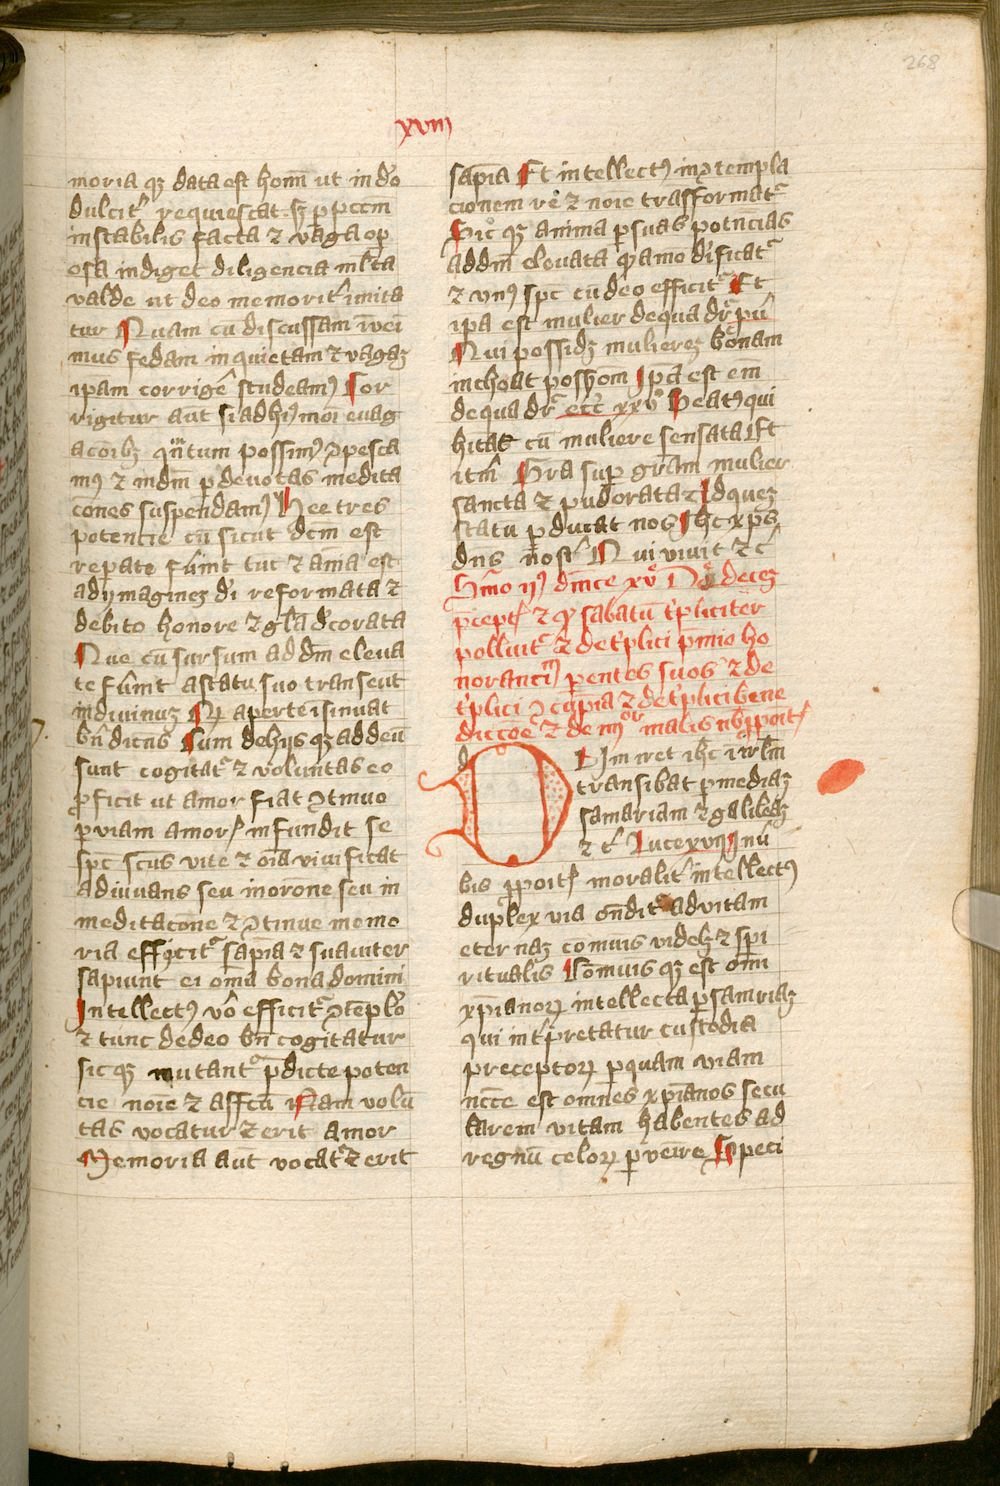 268
xviii
moria qꝫ data est hoı̄ ut in dō
dulcit᷑ requiescat sꝫ ꝑ pcc̄m
instabilis facta ⁊ vaga oꝑ
osa indiget diligencia ml̄ta
valde ut deo memorit᷑ imita
tur Quam cū discussam īvēı
mus fedam inquietam ⁊ vagaꝫ
ipam corrigē studeamꝰ Cor
rigitur aut si ad hꝰmōi evag
acōibꝫ qn̄tum possimꝰ ꝯpesca
mꝰ ⁊ in dm̄ ꝑ devotas medita
cōnes suspendamꝰ Hee tres
potencie cū sicut dc̄m est
reꝑate fūnt tūc ⁊ aīa est
ad ymagineꝫ di reformata ⁊
debito honore ⁊ gl̄a dcorata
Que cū sursum ad dm̄ eleva
te fūnt a statu suo transeūt
in divinuꝫ Qꝫ aperte isinuat
bn̄ dicn̄s Cum de hijs qꝫ ad deū
sunt cogitat᷑ ⁊ voluntas eo
ꝓficit ut amor fiat ꝯtinuo
ꝑ viam amorꝭ infundit se
spc̄ scūs vite ⁊ oīa vivificat
adiuvans seu in orōne seu in
meditacōne ⁊ ꝯtinue memo
ria efficit᷑ sapīa ⁊ suaviter
sapiunt ei om̄a bona domini
Intellectꝰ vō efficit᷑ ꝯteplō
⁊ tunc de deo bn̄ cogitatur
sic qꝫ mutant᷑ p̄dicte poten
cie noīe ⁊ affcū Nam volū
tas vocatur ⁊ erit amor
Memoria aut vocat᷑ ⁊ erit
sapīa Et intellectꝰ in ꝯtempla
cionem rē ⁊ noīe trasformat᷑
Sic qꝫ anima ꝑ suas potn̄cias
ad dm̄ elevata qͦdāmo dificat᷑
⁊ vnꝰ spc̄ cū deo efficit᷑ Et
ipa est mulier de qua dr᷑ pū
Qui possidꝫ muliereꝫ bonam
inchoat possōm Ipa est em̄
de qua dr᷑ ecc̄ xxvͦ Beatꝰ qui
hitat cū muliere sensata Et
itm̄ Gra suꝑ grām mulier
sancta ⁊ pudorata Ad queꝫ
statu ꝑducat nos Ihc xpc̄
dn̄s nost᷑ Qui vivit ⁊ c̄
Smo ijꝰ dnīce xvͦ De deceꝫ
p̄ceptꝭ ⁊ qͦ sabatū tͥpliciter
polluit᷑ ⁊ de tͥplici p̄mio ho
ꝑentes suos ⁊ de
tͥplici ꝯcupīa ⁊ de tͥplici bene
diccōe ⁊ de iiijͦʳ malis
Dum iret ihc ī irlm̄
transibat ꝑ mediaꝫ
samariam ⁊ galileaꝫ
⁊ c̄ Luce xvij In ū
bis ꝓpoitꝭ moralit᷑ intellectꝰ
duplex via on̄dit᷑ ad vitam
eternaꝫ comuis videlꝫ ⁊ spi
ritualis Comuis qꝫ est om̄
xpianoꝝ intellecta ꝑ samriaꝫ
qui int᷑pretatur custodia
preceptoꝝ ꝑ quam viam
ncc̄e est omnes xpianos secu
larem vitam habentes ad
regnū celoꝝ ꝑvenīre Speci